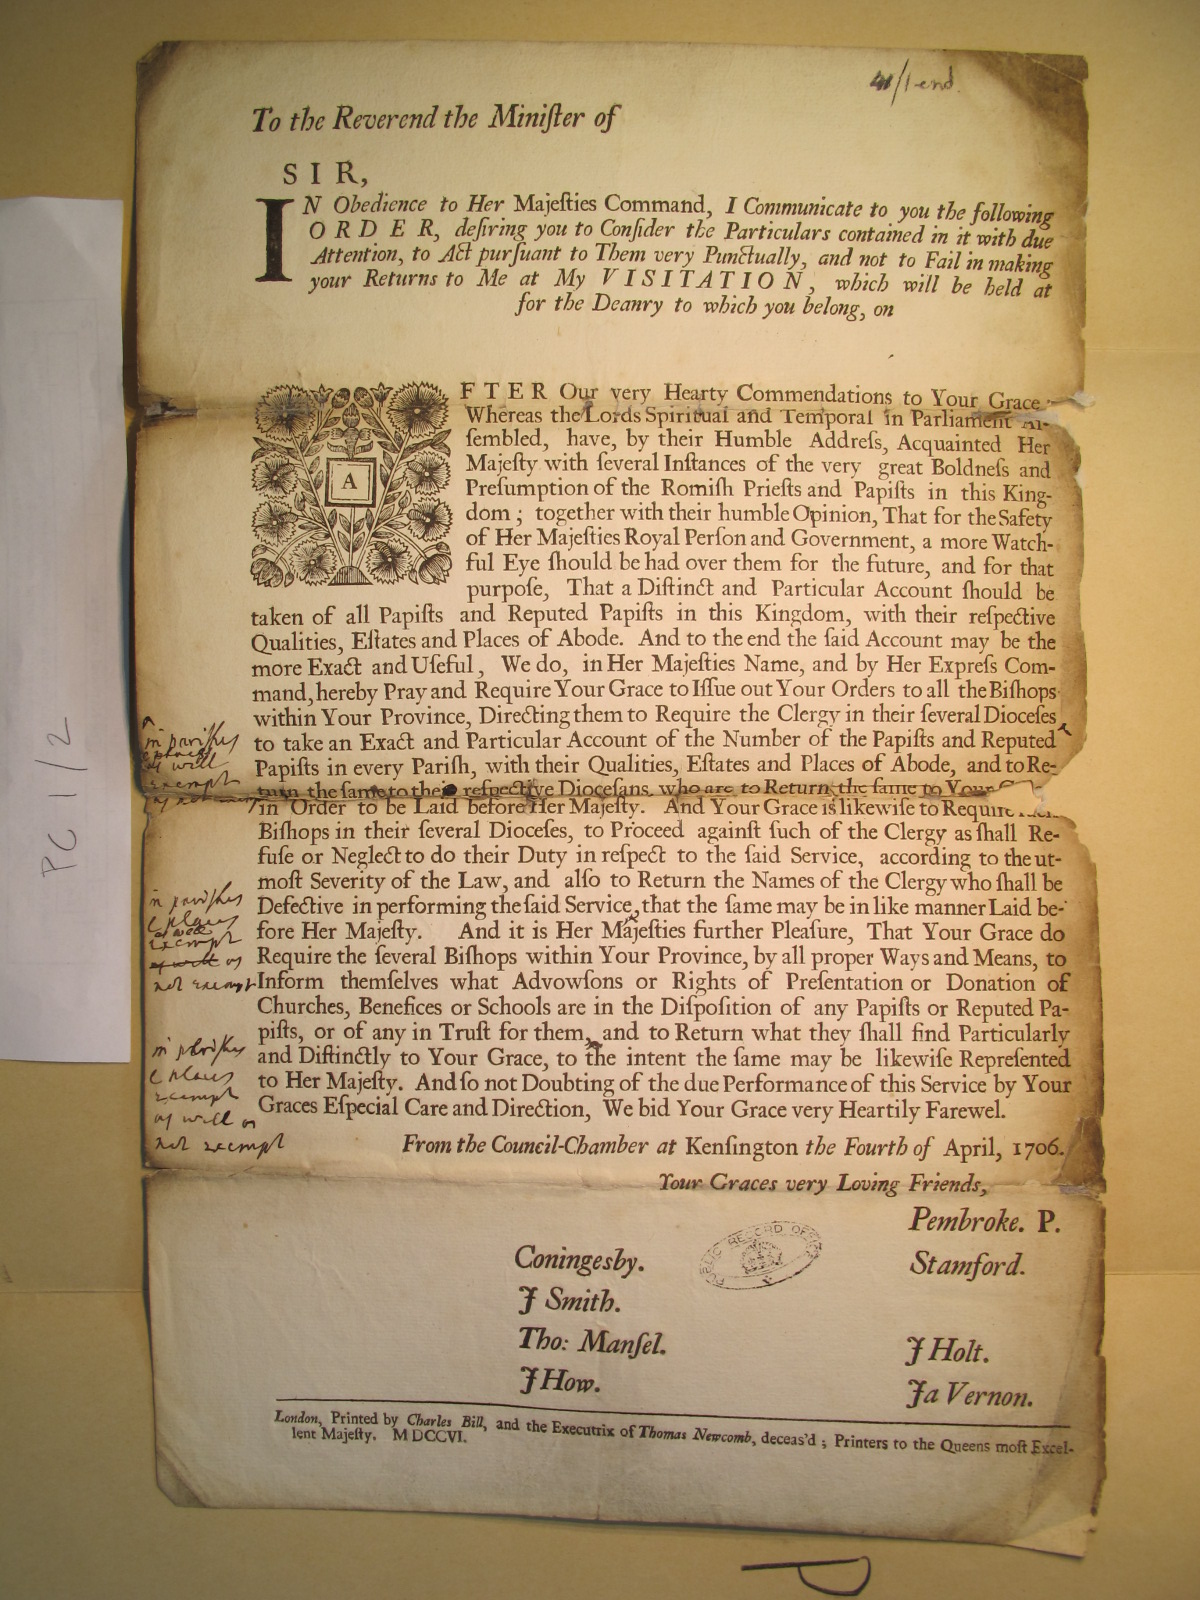 41/1 end.
To the Reverend the Miniſter of
SIR,
IN Obedience to Her Majeſties Command, I Communicate to you the following
ORDER, deſiring you to Conſider the Particulars contained in it with due
Attention, to Act purſuant to Them very Punctually, and not to Fail in making
your Returns to Me at My VISITATION, which will be held at
for the Deanry to which you belong, on
AFTER Our very Hearty Commendations to Your Grace
Whereas the Lords Spiritual and Temporal in Parliament Aſ-
ſembled, have, by their Humble Addreſs, Acquainted Her
Majeſty with ſeveral Inſtances of the very great Boldneſs and
Preſumption of the Romiſh Prieſts and Papiſts in this King-
dom; together with their humble Opinion, That for the Safety
of Her Majeſties Royal Perſon and Government, a more Watch-
ful Eye ſhould be had over them for the future, and for that
purpoſe, That a Diſtinct and Particular Account ſhould be
taken of all Papiſts and Reputed Papiſts in this Kingdom, with their reſpective
Qualities, Eſtates and Places of Abode. And to the end the ſaid Account may be the
more Exact and Uſeful, We do, in Her Majeſties Name, and by Her Expreſs Com-
mand, hereby Pray and Require Your Grace to Iſſue out Your Orders to all the Biſhops
within Your Province, Directing them to Require the Clergy in their ſeveral Dioceſes
to take an Exact and Particular Account of the Number of the Papiſts and Reputed
Papiſts in every Pariſh, with their Qualities, Eſtates and Places of Abode, and to Re-
turn the ſame to their reſpective Dioceſans, who are to Return the ſame to Your
in Order to be Laid before Her Majeſty. And Your Grace is likewiſe to Require
Biſhops in their ſeveral Dioceſes, to Proceed againſt ſuch of the Clergy as ſhall Re-
fuſe or Neglect to do their Duty in reſpect to the ſaid Service, according to the ut-
moſt Severity of the Law, and alſo to Return the Names of the Clergy who ſhall be
Defective in performing the ſaid Service, that the ſame may be in like manner Laid be-
fore Her Majeſty. And it is Her Majeſties further Pleaſure, That Your Grace do
Require the ſeveral Biſhops within Your Province, by all proper Ways and Means, to
Inform themſelves what Advowſons or Rights of Preſentation or Donation of
Churches, Benefices or Schools are in the Diſpoſition of any Papiſts or Reputed Pa-
piſts, or of any in Truſt for them, and to Return what they ſhall find Particularly
and Diſtinctly to Your Grace, to the intent the ſame may be likewiſe Repreſented
to Her Majeſty. And ſo not Doubting of the due Performance of this Service by Your
Graces Eſpecial Care and Direction, We bid Your Grace very Heartily Farewel.
in pariſhes
places
as will
exempt
in pariſhes
& places
as well
exempt
as well as
not exempt
in pariſhes
& places
exempt
as will as
not exempt
From the Council-Chamber at Kenſington the Fourth of April, 1706.
Your Graces very Loving Friends,
Pembroke. P.
Coningesby.
Stamford.
J Smith.
Tho: Manſel.
J Holt.
J How.
Ja Vernon.
PUBLIC RECORD OFFICE
London, Printed by Charles Bill, and the Executrix of Thomas Newcomb, deceas'd; Printers to the Queens moſt Excel-
lent Majeſty. MDCCVI.
PC 1/2